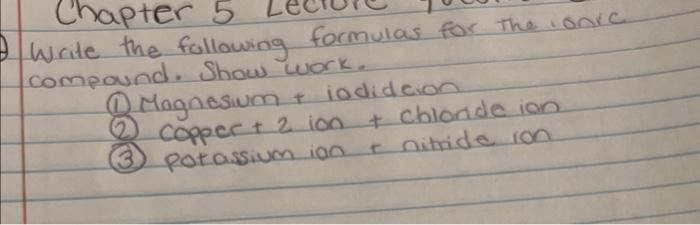 Chapter 5 Lecture
Write the following formulas for the ionic
compound. Show work.
① Magnesium + iodide ion
② copper + 2 ion + chloride ion
③ potassium ion + nitride ion